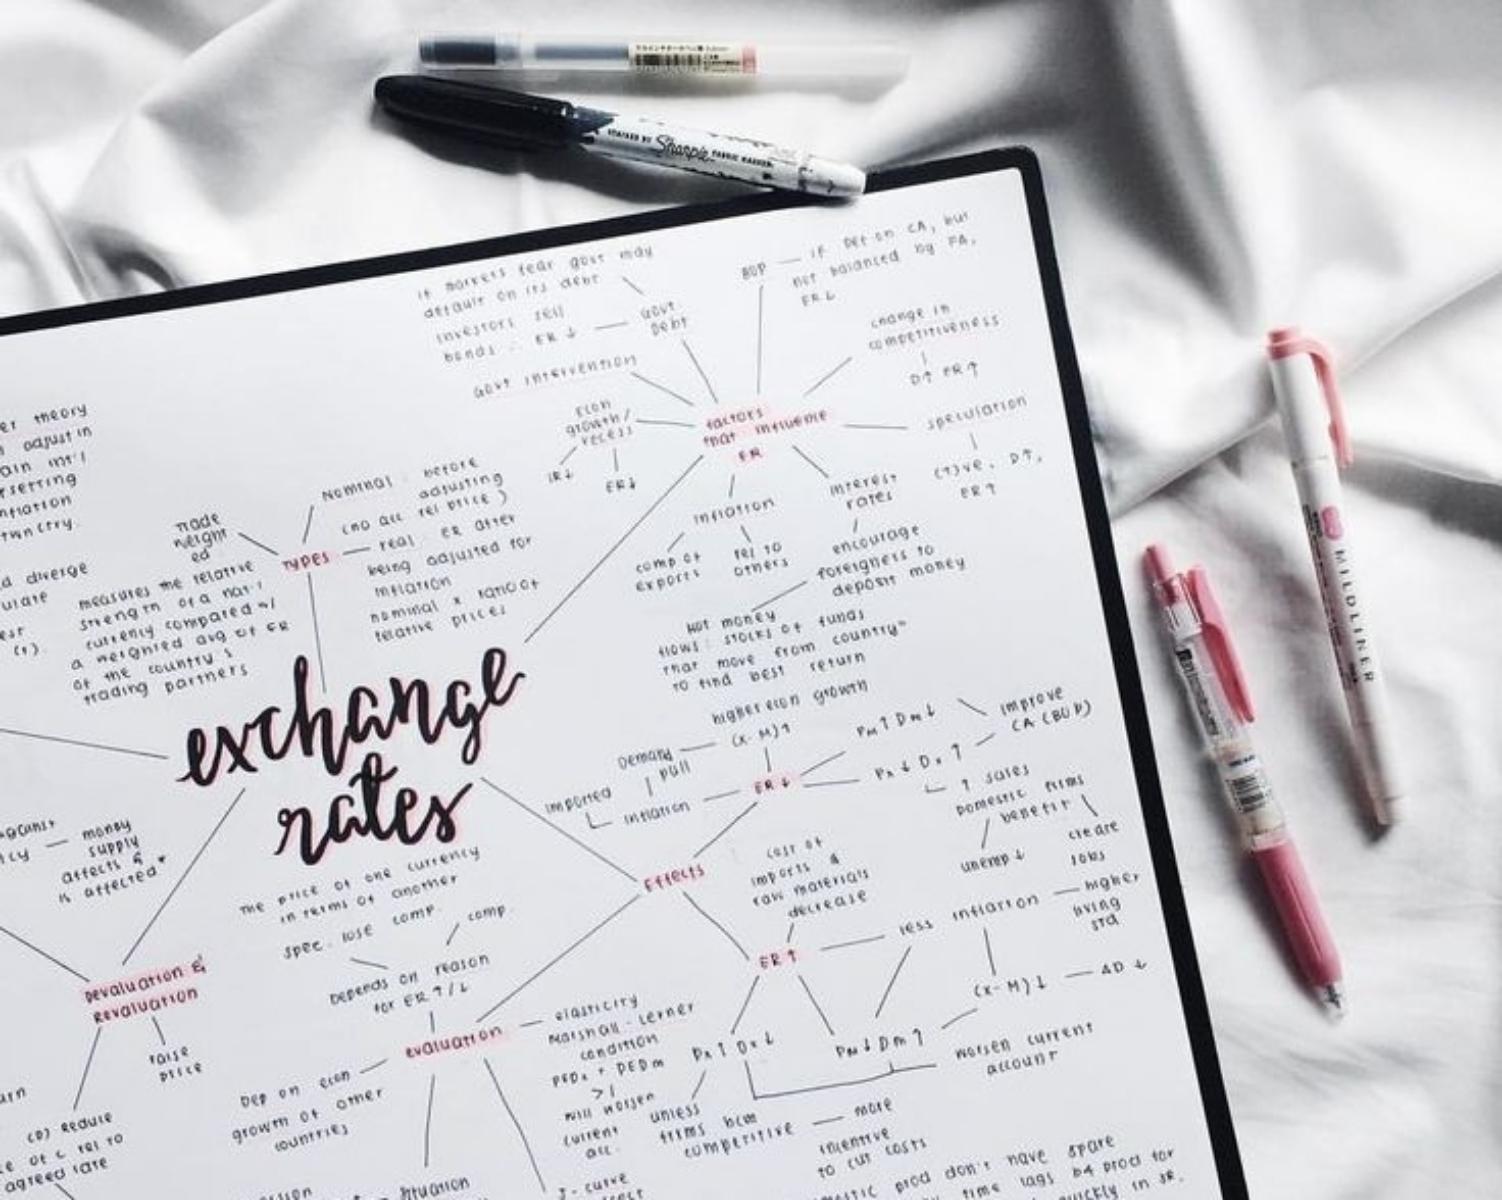 Sharpie
FABRIC MARKER
MILDLINER
if markets fear govt may
default on its debt
investors sell
bonds ∴ ER ↓
govt
debt
BOP — if Def on CA, but
not balanced by FA,
ER↓
change in
competitiveness
D↑ ER↑
govt intervention
econ
growth/
recess
IR↓
ER↓
factors
that influence
ER
speculation
(+)ve, D↑,
ER↑
inflation
comp of
exports
rel to
others
interest
rates
encourage
foreigners to
deposit money
Hot money
flows: stocks of funds
that move from country
to find best return
theory
adjust in
int'l
inflation
diverge
Trade
weight
ed
Types
Nominal: before
adjusting
(no acc rel price)
real: ER after
being adjusted for
inflation
nominal x ratio of
relative prices
measures the relative
strength of a nat'l
currency compared w/
a weighted avg of ER
of the country's
trading partners
exchange
rates
The price of one currency
in terms of another
higher econ growth
(X-M)↑
Demand
pull
imported
inflation
ER↓
Pm↑ Dm↓
Px↓ Dx↑
improve
CA (BOP)
↑ sales
domestic firms
benefit
unemp ↓
create
jobs
Effects
cost of
imports &
raw materials
decrease
ER↑
less inflation — higher
living
std
(X-M)↓ — AD ↓
Px↑ Dx↓
Pm↓ Dm↑
worsen current
account
unless
firms bcm
competitive — more
incentive
to cut costs
money
supply
affects &
is affected
Devaluation &
Revaluation
raise
price
(D) Reduce
rel to
agreed rate
spec. lose comp.
comp.
Depends on reason
for ER↑/↓
evaluation
elasticity
Marshall-Lerner
condition
PEDx + PEDm
>1
will worsen
current
acc.
Dep on econ
growth of other
countries
J-curve
prod don't have spare
time lags b4 prod for
quickly in SR.